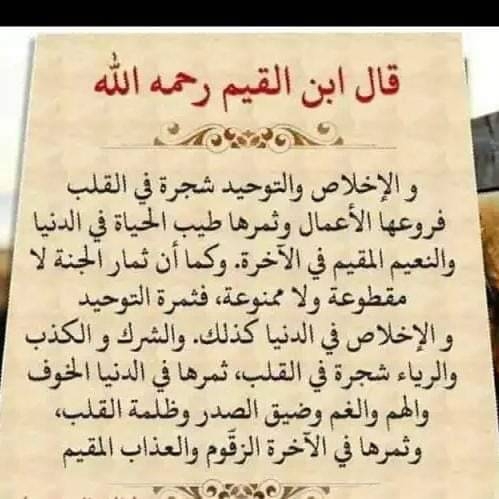 قال ابن القيم رحمه الله
و الإخلاص والتوحيد شجرة في القلب
فروعها الأعمال وثمرها طيب الحياة في الدنيا
والنعيم المقيم في الآخرة. وكما أن ثمار الجنة لا
مقطوعة ولا ممنوعة، فثمرة التوحيد
و الإخلاص في الدنيا كذلك. والشرك و الكذب
والرياء شجرة في القلب، ثمرها في الدنيا الخوف
والهم والغم وضيق الصدر وظلمة القلب،
وثمرها في الآخرة الزقّوم والعذاب المقيم